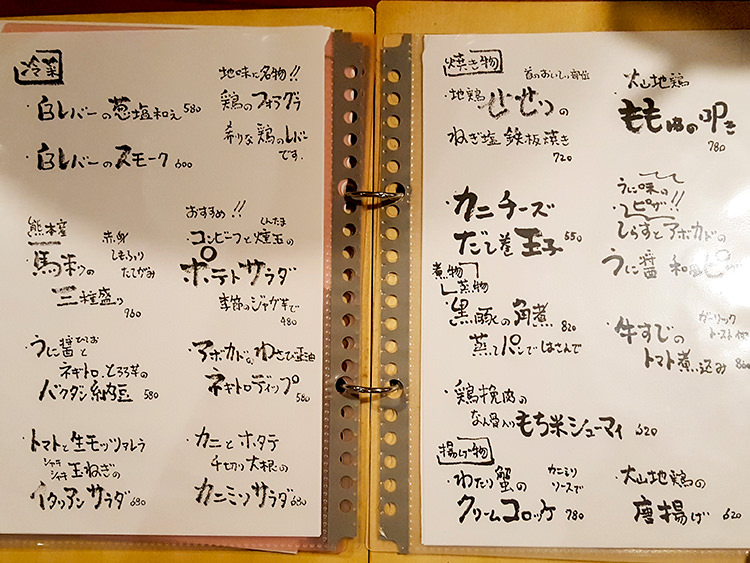 冷菜
・白レバーの葱塩和え 580
・白レバーのスモーク 600
地味に名物!!
鶏のフォアグラ
希少な鶏のレバー
です。
熊本産
・馬刺しの
赤身
しもふり
たてがみ
三種盛り 980
おすすめ!!
・コンビーフと燻玉の
くんたま
ポテトサラダ
季節のジャガ芋で
480
・うに醤と
ひしお
ネギトロ、とろろ芋の
バクダン納豆 580
・アボカドのわさび正油
ネギトロディップ 580
・トマトと生モッツァレラ
シャキシャキ玉ねぎの
イタリアンサラダ 680
・カニとホタテ
千切り大根の
カニミソサラダ 680
焼き物
首のおいしい部位
・地鶏せせりの
ねぎ塩鉄板焼き
720
大山地鶏
もも肉の叩き
780
・カニチーズ
だし巻玉子 550
うに味の
ピザ!!
・しらすとアボカドの
うに醤 和風ピ
煮物
蒸物
・黒豚の角煮 820
蒸しパンではさんで
・牛すじの
ガーリック
トースト付
トマト煮込み
・鶏挽肉の
なん骨入りもち米シューマイ 620
揚げ物
・わたり蟹の
カニミソ
ソースで
クリームコロッケ 780
・大山地鶏の
唐揚げ 620